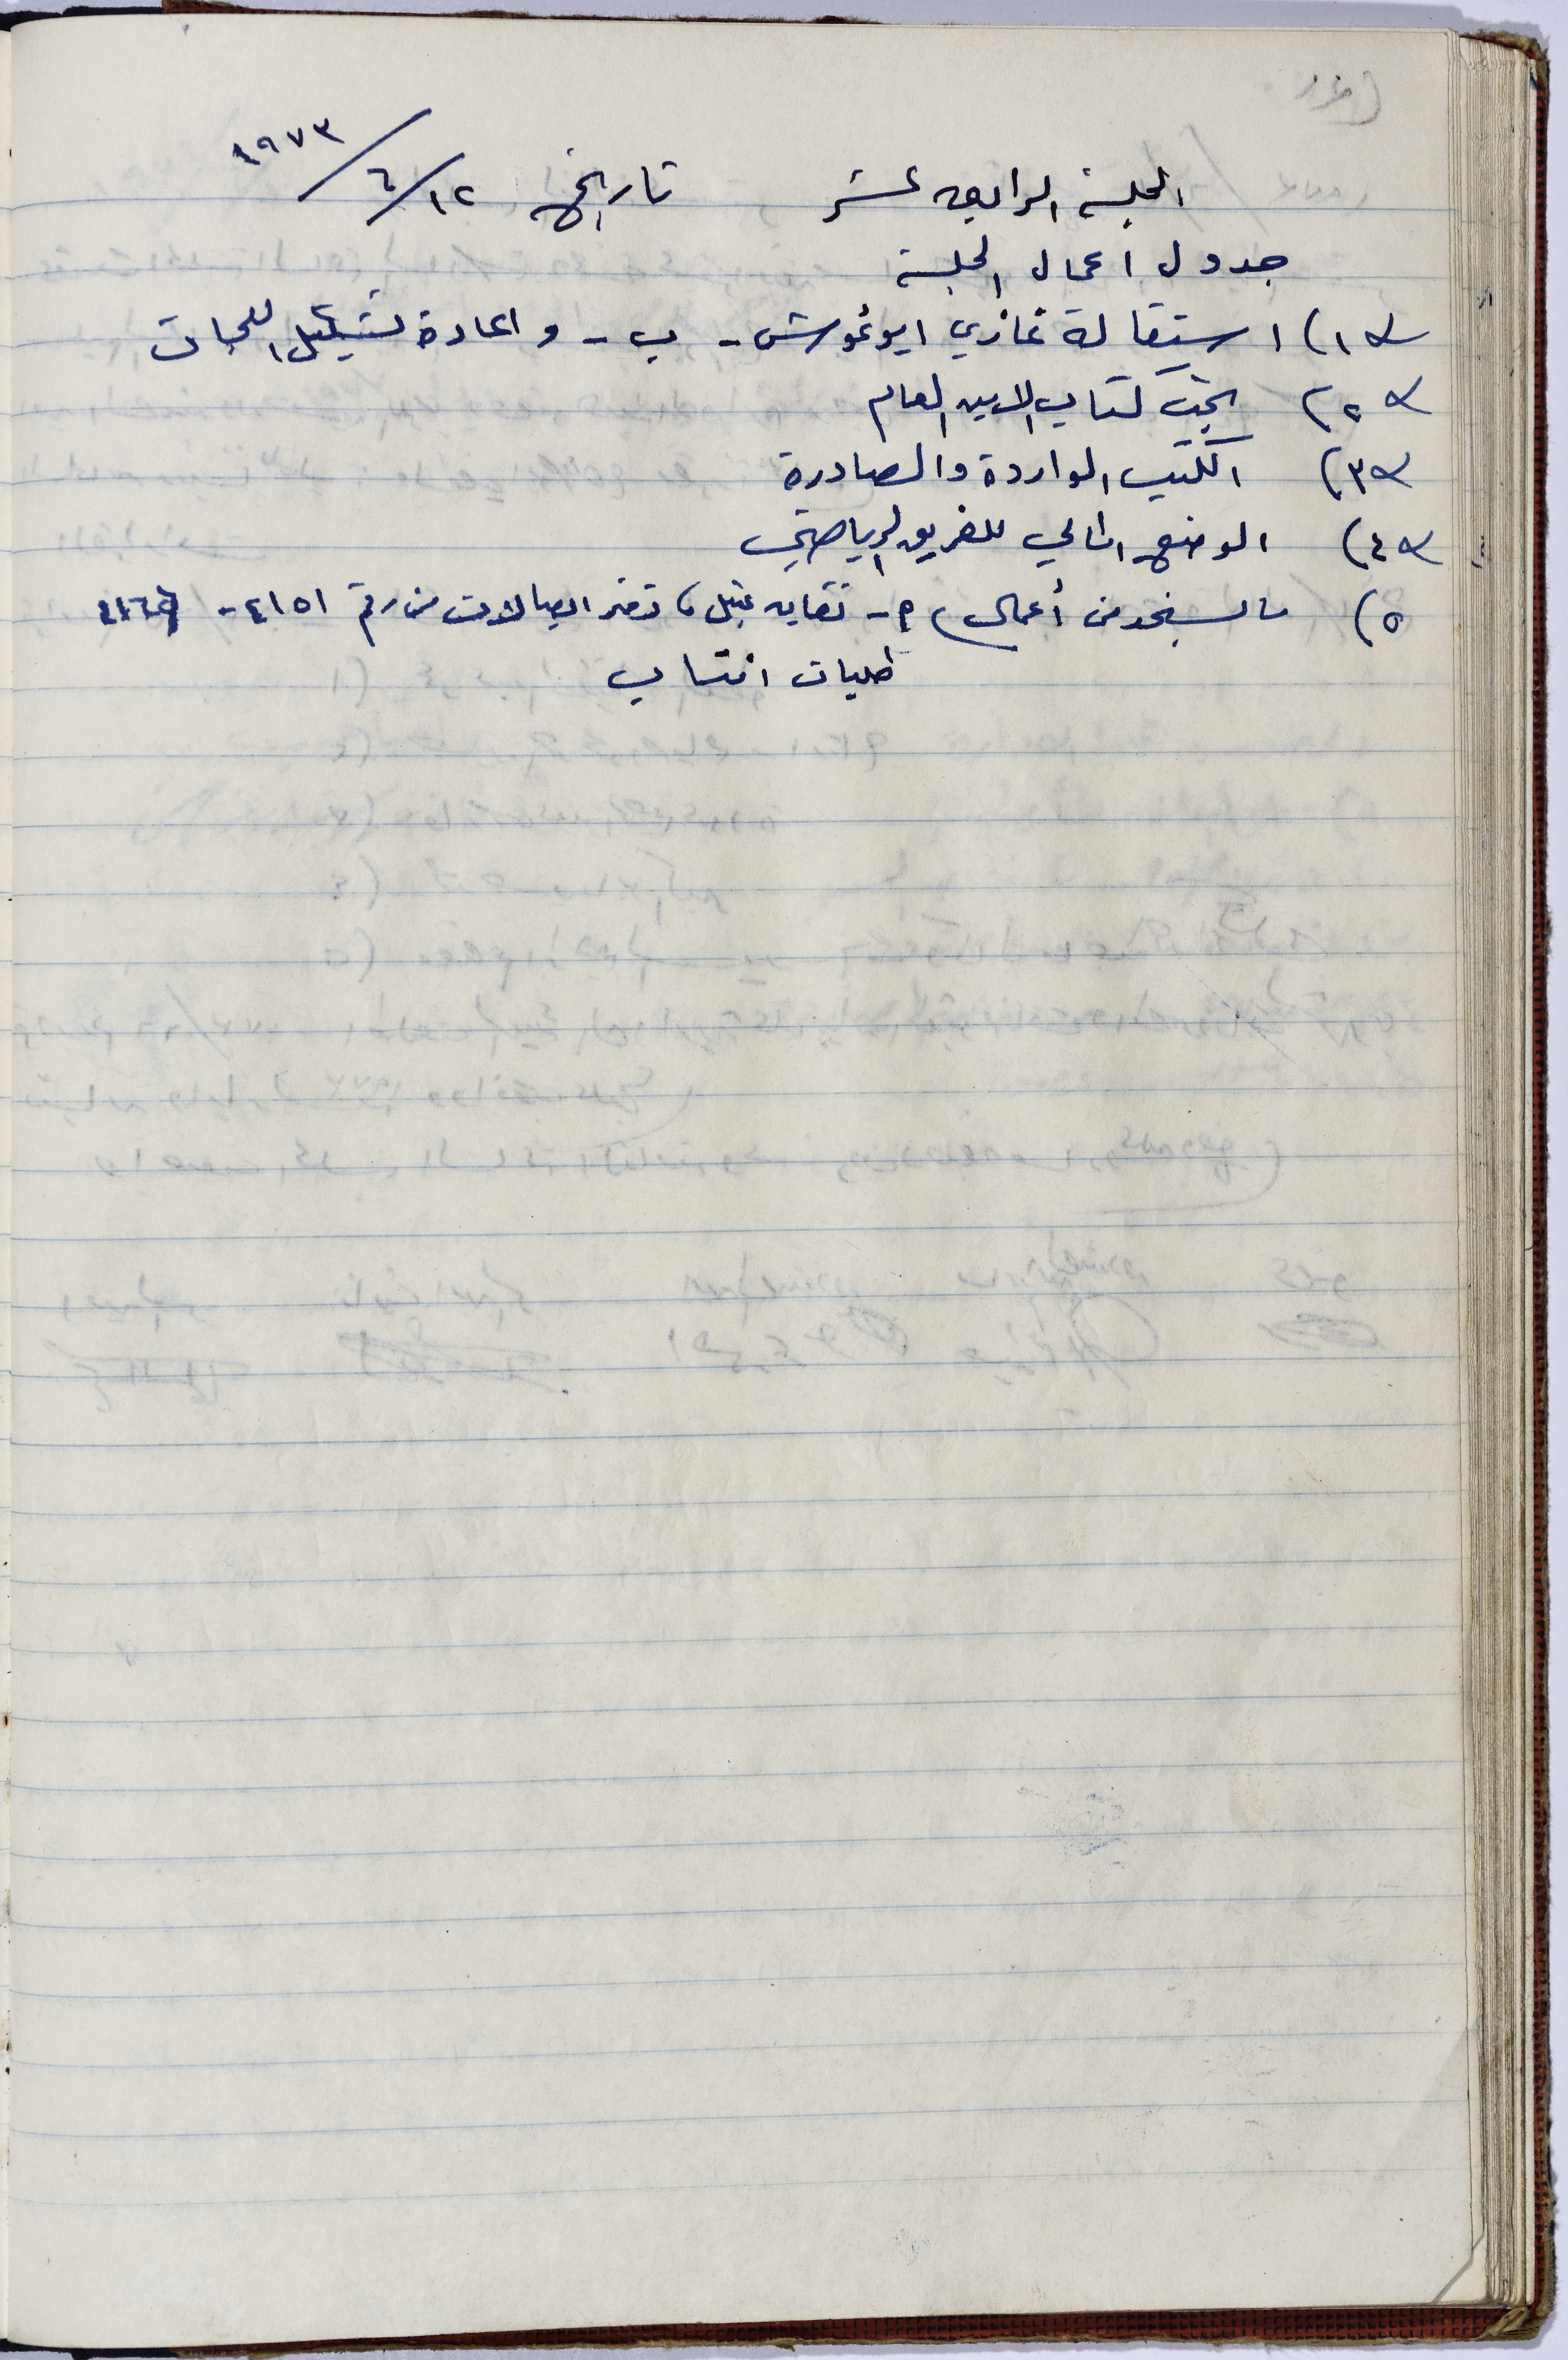 الجلسة الرابعة عشر تاريخ ١٢/٦/١٩٧٣
جدول اعمال الجلسة
١) استقالة غازي ابو غوش - ب - واعادة تشكيل اللجان
٢) بحث كتاب الامين العام
٣) الكتب الواردة والصادرة
٤) الوضع المالي للفريق الرياضي
٥) ما يستجد من أعمال م - نقابه دفتر ايصالات من رقم ٤١٥١ -
طلبات انتساب